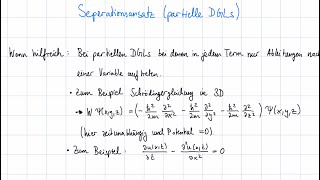 Seperationsansatz (partielle DGLs)
Wann hilfreich: Bei partiellen DGLs bei denen in jedem Term nur Ableitungen nach
einer Variable auftreten.
• Zum Beispiel Schrödingergleichung in 3D
→ W Ψ(x,y,z) = (- ħ²/2m ∂²/∂x² - ħ²/2m ∂²/∂y² - ħ²/2m ∂²/∂z²) Ψ(x,y,z)
(hier zeitunabhängig und Potential = 0).
• Zum Beispiel: ∂u(x,t)/∂t - ∂²u(x,t)/∂x² = 0